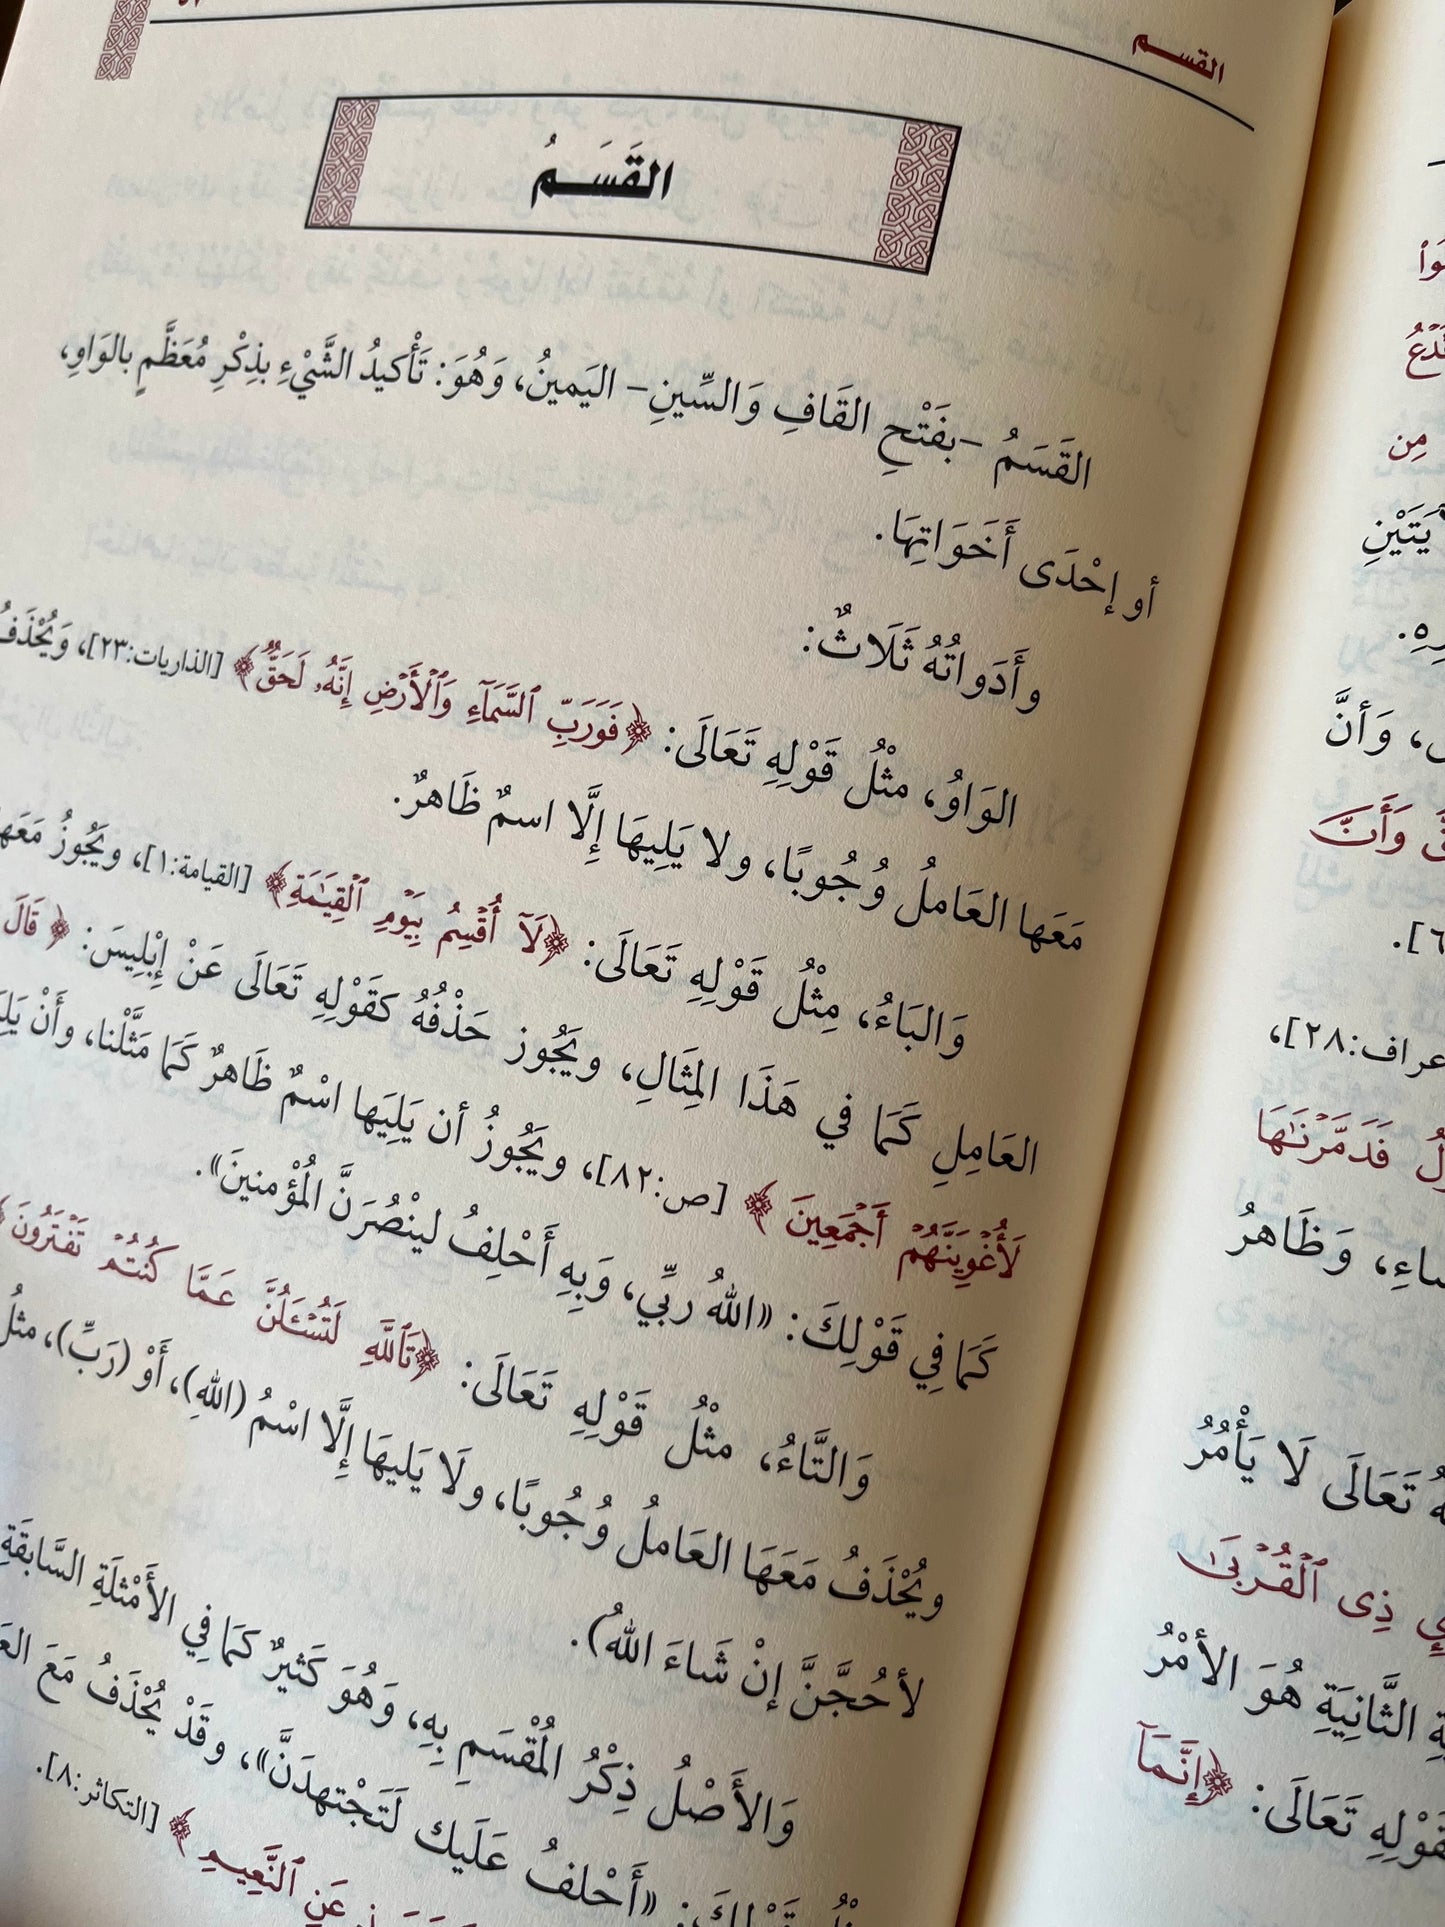 القسم
القَسَمُ
القَسَمُ -بفَتْحِ القَافِ وَالسِّينِ- اليَمينُ، وَهُوَ: تَأْكيدُ الشَّيْءِ بذِكْرِ مُعَظَّمٍ بالوَاوِ،
أو إحْدَى أَخَوَاتِهَا.
وأَدَواتُهُ ثَلَاثٌ:
الوَاوُ، مثْلُ قَوْلِهِ تَعَالَى: ﴿فَوَرَبِّ ٱلسَّمَآءِ وَٱلْأَرْضِ إِنَّهُۥ لَحَقٌّ﴾ [الذاريات:٢٣]، وَيُحْذَفُ
مَعَها العَاملُ وُجُوبًا، ولا يَلِيهَا إِلَّا اسمٌ ظَاهرٌ.
وَالبَاءُ، مِثْلُ قَوْلِهِ تَعَالَى: ﴿لَآ أُقْسِمُ بِيَوْمِ ٱلْقِيَٰمَةِ﴾ [القيامة:١]، ويَجُوزُ مَعَها
العَامِلِ كَمَا في هَذَا المِثَالِ، ويَجُوز حَذْفُهُ كقَوْلِهِ تَعَالَى عَنْ إِبْلِيسَ: ﴿ قَالَ
لَأُغْوِيَنَّهُمْ أَجْمَعِينَ ﴾ [ص:٨٢]، ويَجُوزُ أن يَلِيَها اسْمٌ ظَاهرٌ كَمَا مَثَّلْنا، وأَنْ
كَمَا فِي قَوْلِكَ: «اللهُ ربِّي، وَبِهِ أَحْلِفُ لينْصُرَنَّ المُؤْمنينَ».
وَالتَّاءُ، مثْلُ قَوْلِهِ تَعَالَى: ﴿تَٱللَّهِ لَتُسْـَٔلُنَّ عَمَّا كُنتُمْ تَفْتَرُونَ﴾
ويُحْذَفُ مَعَهَا العَاملُ وُجُوبًا، ولَا يَليهَا إِلَّا اسْمُ (اللهِ)، أَوْ (رَبِّ)، مثلُ
لأحُجَّنَّ إنْ شَاءَ اللهُ).
وَالأَصْلُ ذِكْرُ المُقْسَمِ بِهِ، وَهُوَ كَثيرٌ كَمَا فِي الأَمْثلَةِ السَّابقَةِ
قَوْلِكَ: «أَحْلفُ عَلَيك لَتَجْتهدَنَّ»، وقَدْ يُحْذَفُ مَعَ
عَنِ ٱلنَّعِيمِ ﴾ [التكاثر:٨].
مِن
وَأنَّ
وَأَنَّ
٢٨]،
فَدَمَّرْنَٰهَا
وَظَاهرُ
تَعَالَى لَا يَأْمُرُ
ذِى ٱلْقُرْبَىٰ
الثَّانِيَةِ هُوَ الأمْرُ
تَعَالَى: ﴿إِنَّمَآ